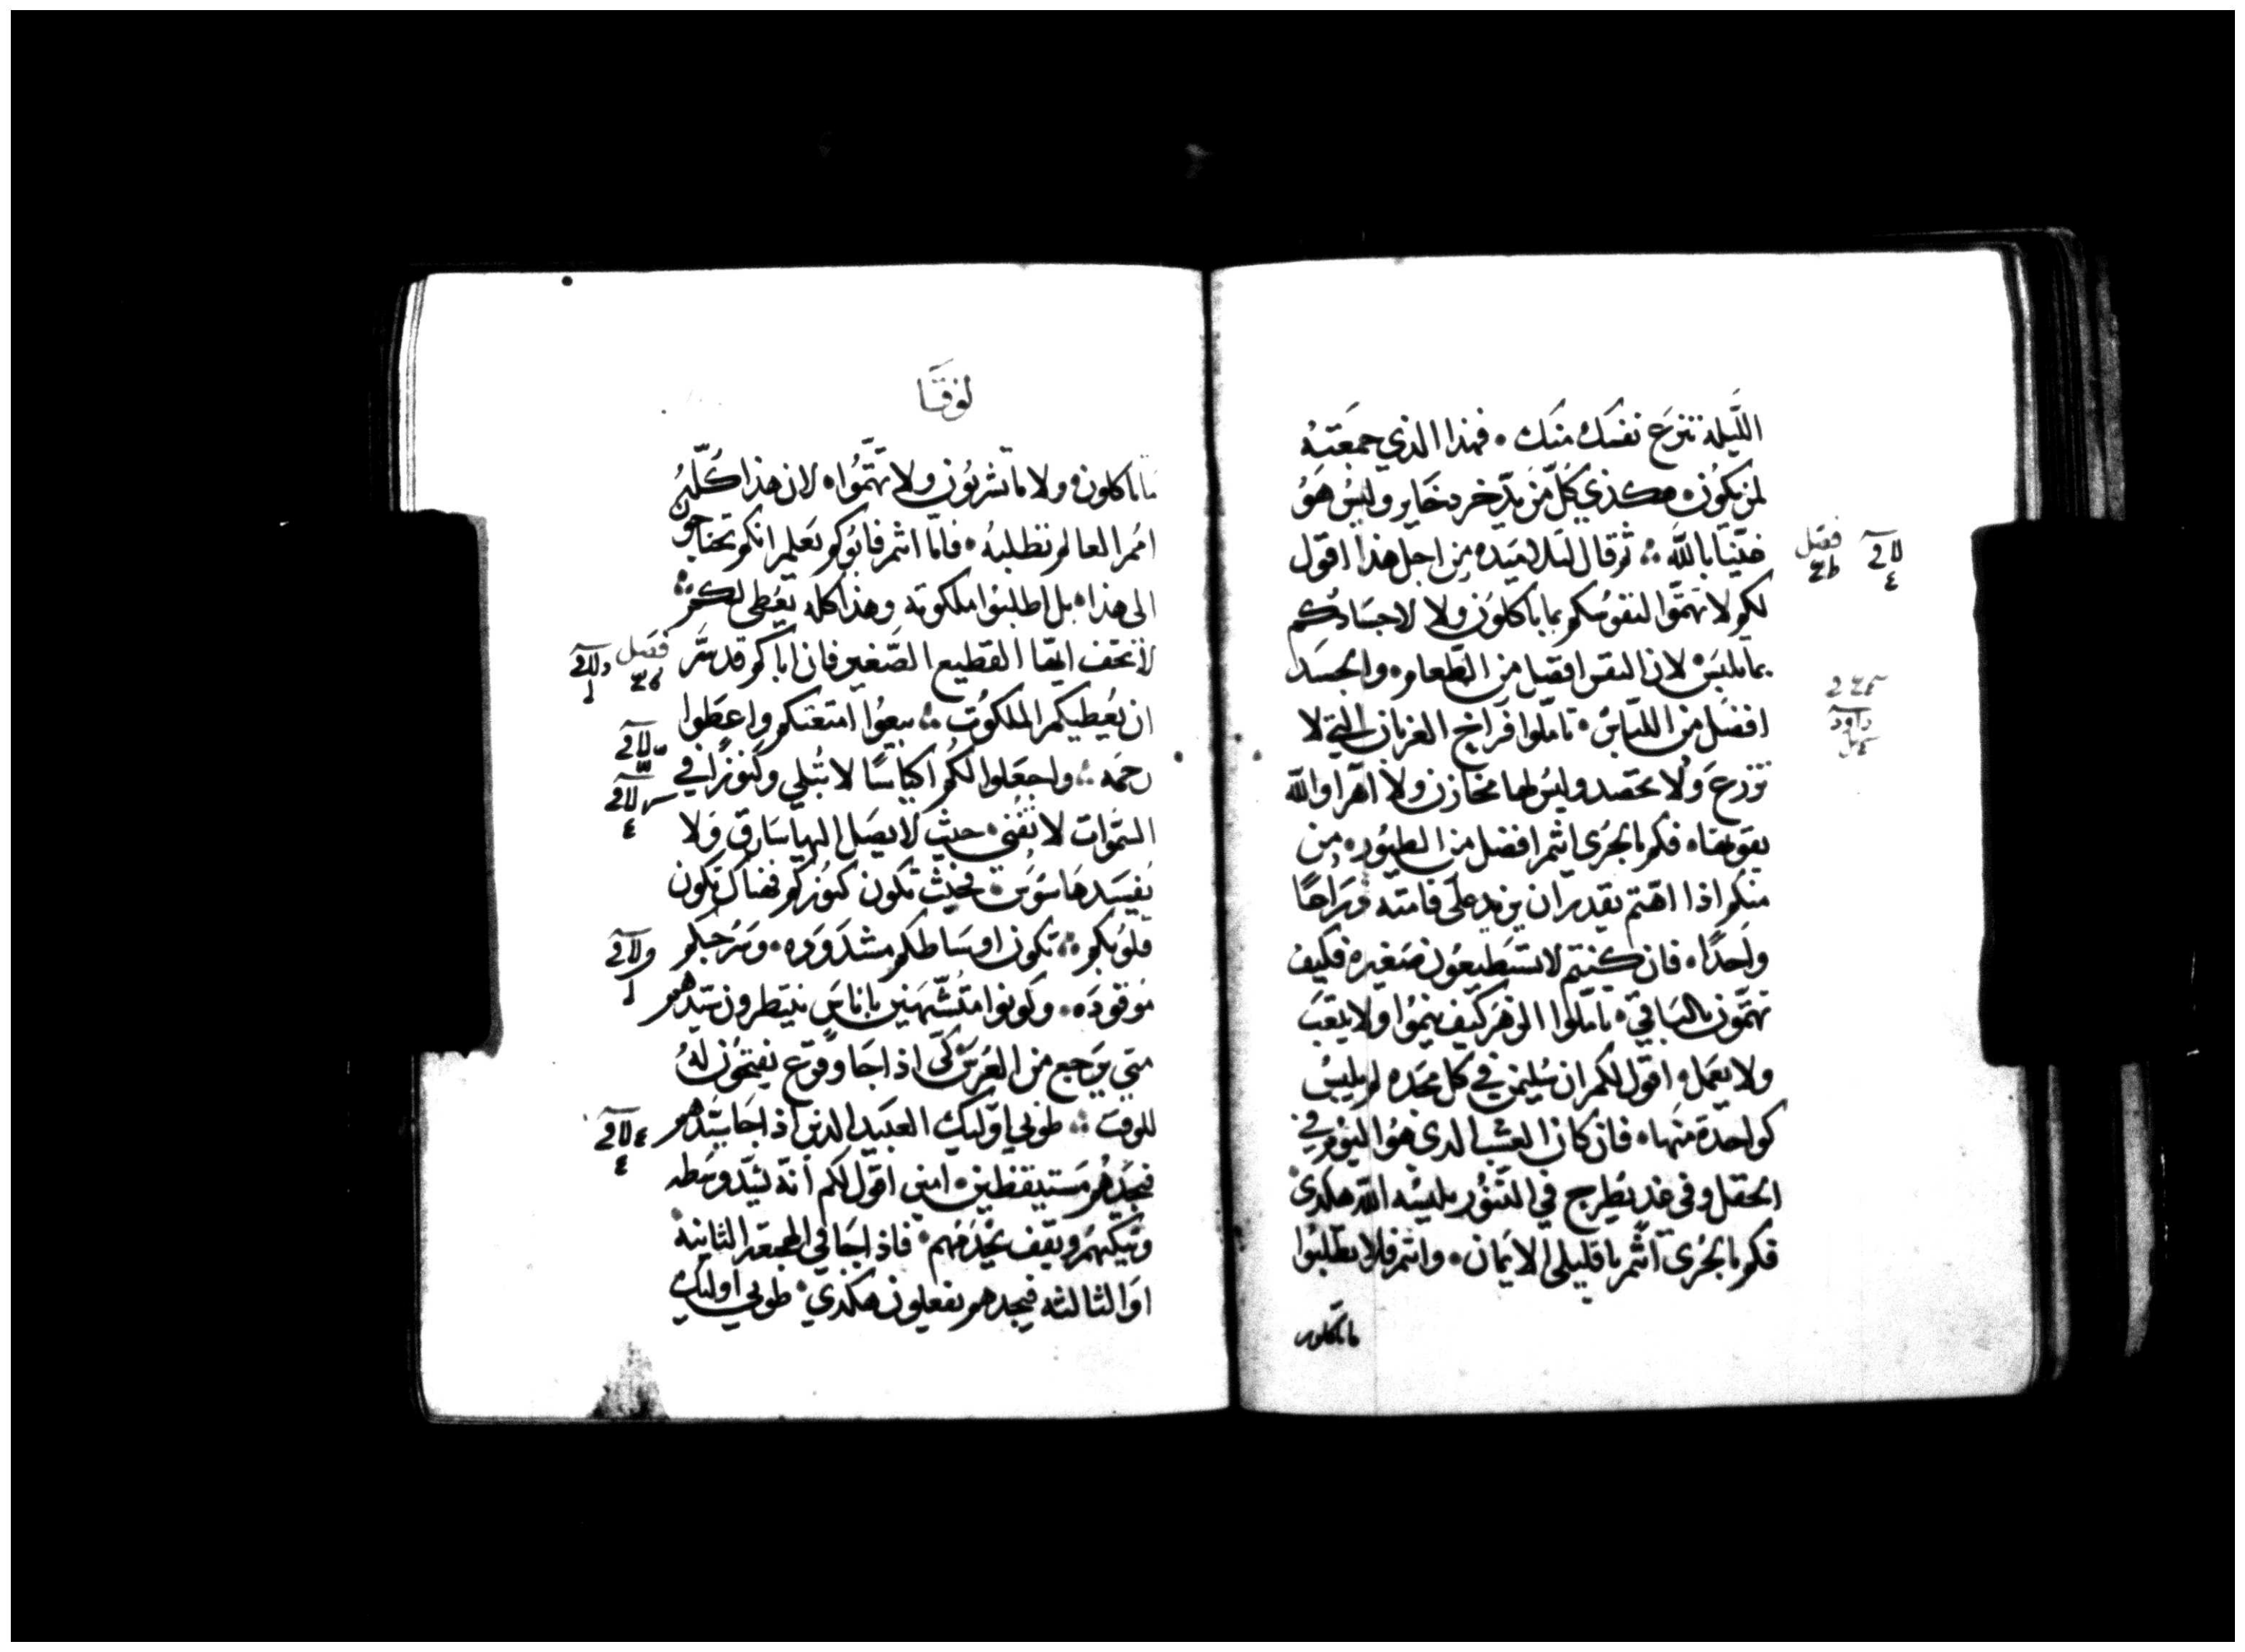 الليله تنزع نفسك منك • فهذا الذي جمعته
لمن يكون • هكذي كل من يدخر دخاير وليس هو
غنيا بالله ⁘ ثم قال لتلاميده من اجل هذا اقول
لكم لا تهتموا لنفوسكم بما تاكلون ولا لاجسادكم
بما تلبس لان النفس افضل من الطعام • والجسد
افضل من اللباس • تاملوا فراخ الغربان التي لا
تزرع ولا تحصد وليس لها مخازن ولا اهرا والله
يقوتها • فكم بالحري انتم افضل من الطيور • من
منكم اذا اهتم يقدر ان يزيد على قامته دراعا
واحدا • فان كنتم لا تستطيعون صغيره فكيف
تهتمون بالباقي • تاملوا الزهر كيف ينموا ولا يتعب
ولا يعمل واقول لكم ان سليمن في كل مجده لم يلبس
كواحدة منها • فان كان العشب الدى هو اليوم في
الحقل وفي غد يطرح في التنور يلبسه الله هكدى
فكم بالحرى انتم يا قليلى الايمان • وانتم فلا تطلبوا
ما تاكلون
فصل
لوقا
ما تاكلون ولا ما تشربون ولا تهتموا • لان هذا كله
امم العالم تطلبه • فاما انتم فابوكم يعلم انكم تحتاجون
الى هذا • بل اطلبوا ملكوته وهذا كله تعطى لكم ⁘
لا تخف ايها القطيع الصغير فان اباكم قد سر
ان يعطيكم الملكوت ⁘ بيعوا امتعتكم واعطوا
رحمه ⁘ واجعلوا لكم اكياسا لا تبلي وكنوزا في
السموات لا تفنى • حيث لا يصل اليها سارق ولا
يفسدها سوس • فحيث تكون كنوزكم فهناك تكون
قلوبكم ⁘ تكون اوساطكم مشدوده • وسرجكم
موقوده • وكونوا متشبهين باناس ينتظرون سيدهم
متي يرجع من العرس كى اذا جا وقرع يفتحون له
للوقت ⁘ طوبي اوليك العبيد الدين اذا جا سيدهم
فيجدهم مستيقظين • امين اقول لكم انه يشد وسطه
ويتكيهم ويقف يخدمهم • فاذا جا في الهجعه الثانيه
او الثالثه فيجدهم يفعلون هكذي • طوبي اوليك
فصل